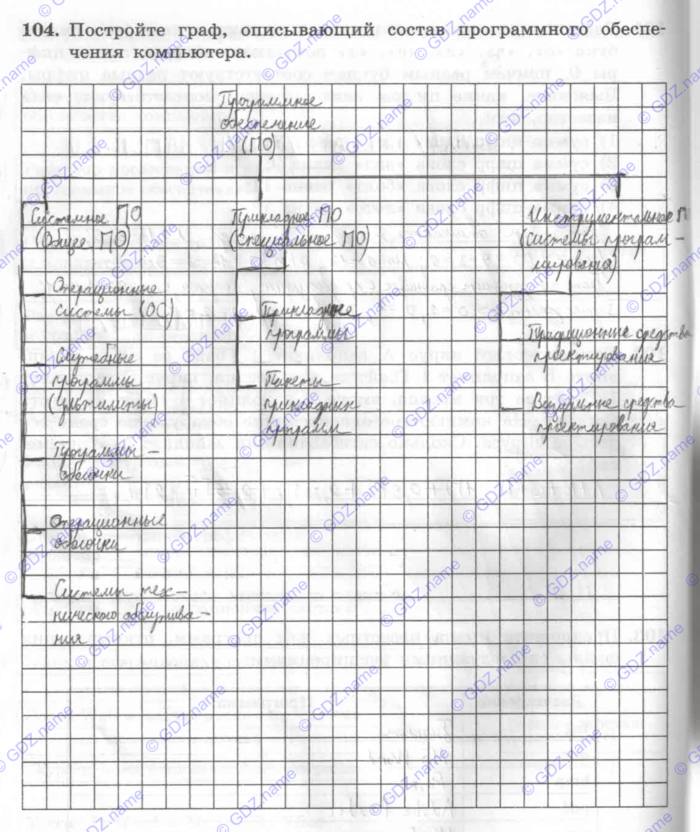 104. Постройте граф, описывающий состав программного обеспе-
чения компьютера.
Программное
обеспечение
(ПО)
Системное ПО
(Общее ПО)
Операционные
системы (ОС)
Служебные
программы
Программы –
оболочки
Операционные
оболочки
Системы тех-
нического обслужива-
ния
Прикладное ПО
(специальное ПО)
Прикладные
программы
Пакеты
прикладных
программ
Инструментальное П
(системы програм-
мирования)
Традиционные средства
проектирования
Визуальные средства
проектирования
© GDZ.name